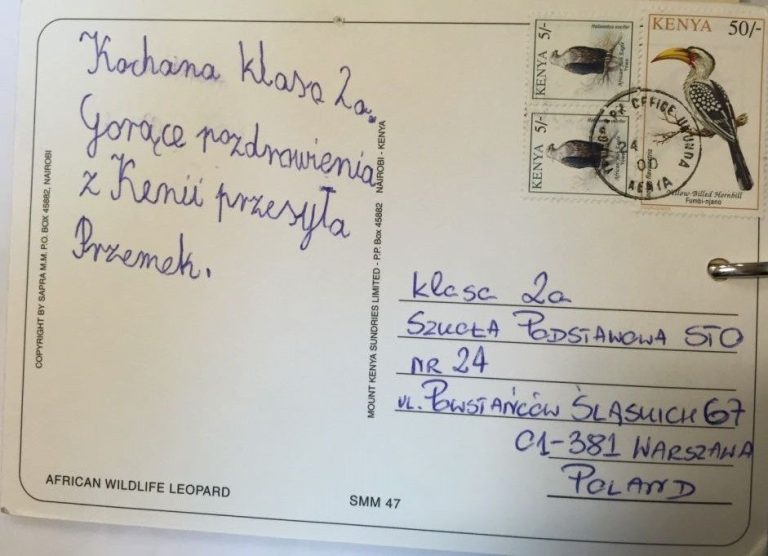 Kochana klasa 2a.
Gorące pozdrowienia
z Kenii przesyła
Przemek.
COPYRIGHT BY SAPRA M.M. P.O. BOX 45882, NAIROBI
MOUNT KENYA SUNDRIES LIMITED - P.P. Box 45882 NAIROBI - KENYA
KENYA 5/-
African Fish Eagle
KENYA 5/-
African Fish Eagle
KENYA 50/-
Yellow-Billed Hornbill
Fumbi-njano
OFFICE UKUNDA
KENYA
klasa 2a
SZKOŁA PODSTAWOWA STO
NR 24
ul. POWSTAŃCÓW ŚLĄSKICH 67
01-381 WARSZAWA
POLAND
AFRICAN WILDLIFE LEOPARD
SMM 47